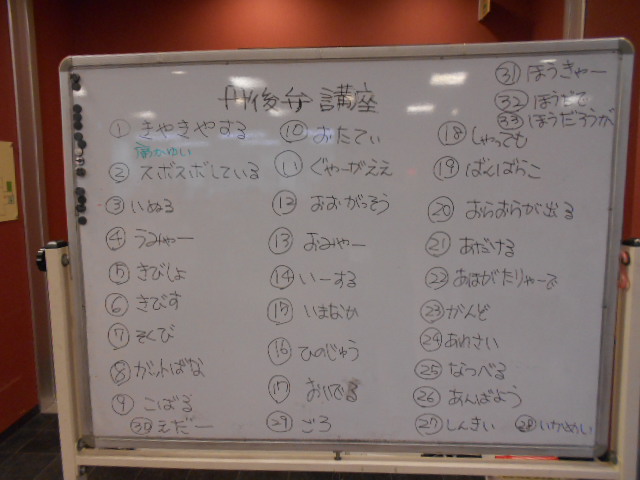 後弁講座
① きやきやする
歯がかゆい
② スボスボしている
③ いぬる
④ うみゃー
⑤ きびしょ
⑥ きびす
⑦ そくび
⑧ がんばな
⑨ こばる
㉚ えだー
⑩ おたてぃ
⑪ ぐゃーがええ
⑫ おおがっそう
⑬ おみゃー
⑭ いーする
⑮ いまなか
⑯ ひのじゅう
⑰ おいでる
㉙ ごろ
⑱ しゃっても
⑲ ばんばらこ
⑳ おらおらが出る
㉑ あだける
㉒ あはがたりゃーで
㉓ がんど
㉔ あれさい
㉕ なっべる
㉖ あんばよう
㉗ しんきい
㉘ いかめしい
㉛ ほうきゃー
㉜ ほうじで
㉝ ほうだろうが